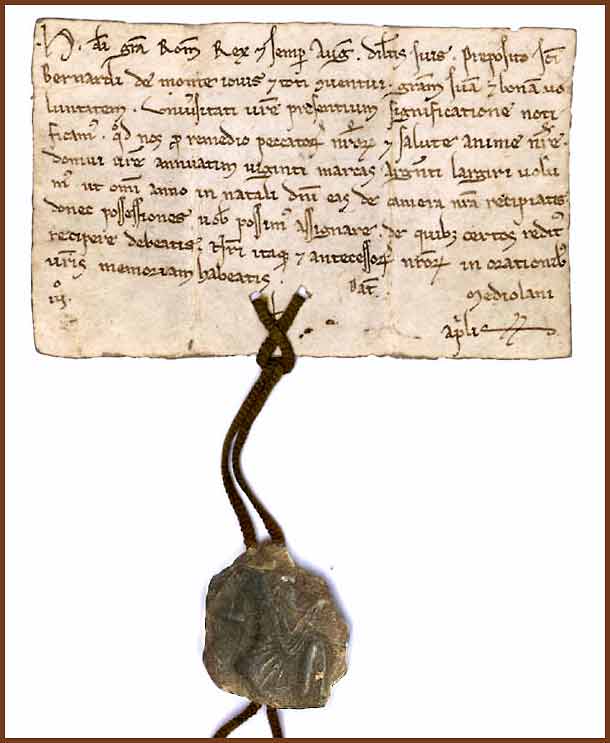 .H. di grã Rom̃ Rex ⁊ semꝑ Aug̃. dilc̃is suis. Preposito sc̃i
Bernardi de monte iouis ⁊ toti ꝯuentui. gram̃ suã ⁊ bonã uo
luntatem. Vniũsitati ur̃e presentium significatione noti
ficamꝰ. qd̃ nos ꝓ remedio peccatoꝝ nr̃oꝝ ⁊ salute anime nr̃e.
domui ur̃e annuatim uiginti marcas arg̃nti largiri uolu
mꝰ ut om̃i anno in natali dñi eas de camera nr̃a recipiatis
donec possessiones uob̃ possimꝰ assignare. de quibꝫ certos redditꝰ
recipere debeatis. Nr̃i itaqꝫ ⁊ antecessoꝝ nr̃oꝝ in orationibꝰ
ur̃is memoriam habeatis. Dat̃. Mediolani
ap̃lis